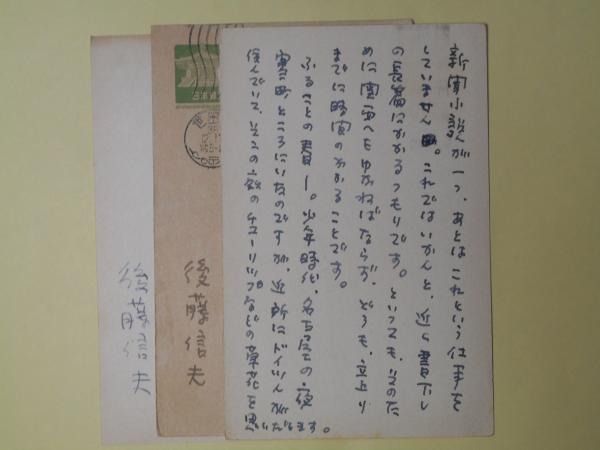 新聞小説が一つ、あとはこれという仕事を
していません。これではいかんと、近く書下し
の長篇にかかるつもりです。といっても、そのた
めにへもゆかねばならず、どうも、立上り
までに時間のかかることです。
ふるさとの春ー。少年時代、名古屋の
ところにいたのですが、近所にドイツ人が
住んでいて、その家のチューリップなどの草花を思いだします。
後藤信夫
後藤信夫